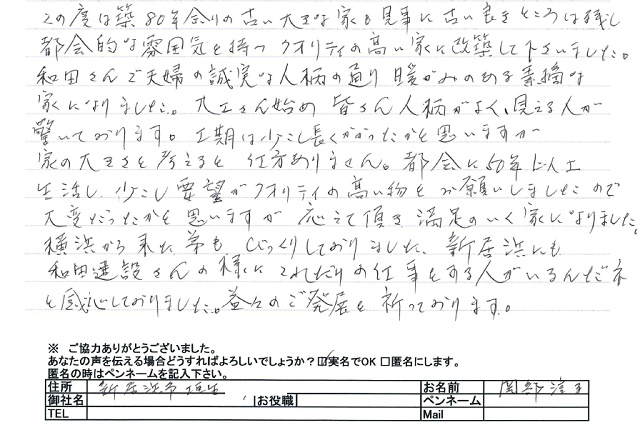 この度は築80年余りの古い大きな家を見事に古い良きところは残し
都会的な雰囲気を持つクオリティの高い家に改築して下さいました。
和田さんご夫婦の誠実な人柄の通り暖かみのある素敵な
家になりました。大工さん始め皆さん人柄がよく、見える人が
驚いております。工期は少し長くかかったかと思いますが
家の大きさを考えると仕方ありません。都会に50年以上
生活し、少し要望がクオリティの高い物をお願いしましたので
大変だったかと思いますが応えて頂き満足のいく家になりました。
横浜から来た弟もびっくりしておりました、新居浜にも
和田建設さんの様にこれだけの仕事をする人がいるんだネ
と感心しておりました。益々のご発展を祈っております。
※ ご協力ありがとうございました。
あなたの声を伝える場合どうすればよろしいでしょうか？☑実名でOK □匿名にします。
匿名の時はペンネームを記入下さい。
住所 新居浜市 お名前
御社名 お役職 ペンネーム
TEL Mail